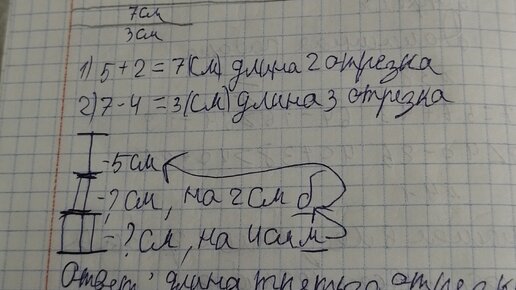 7см
3см
1) 5+2=7(см) длина 2 отрезка
2) 7-4=3(см) длина 3 отрезка
I -5см
II -?см, на 2см б
III -?см, на 4см м
Ответ: длина третьего отрезк